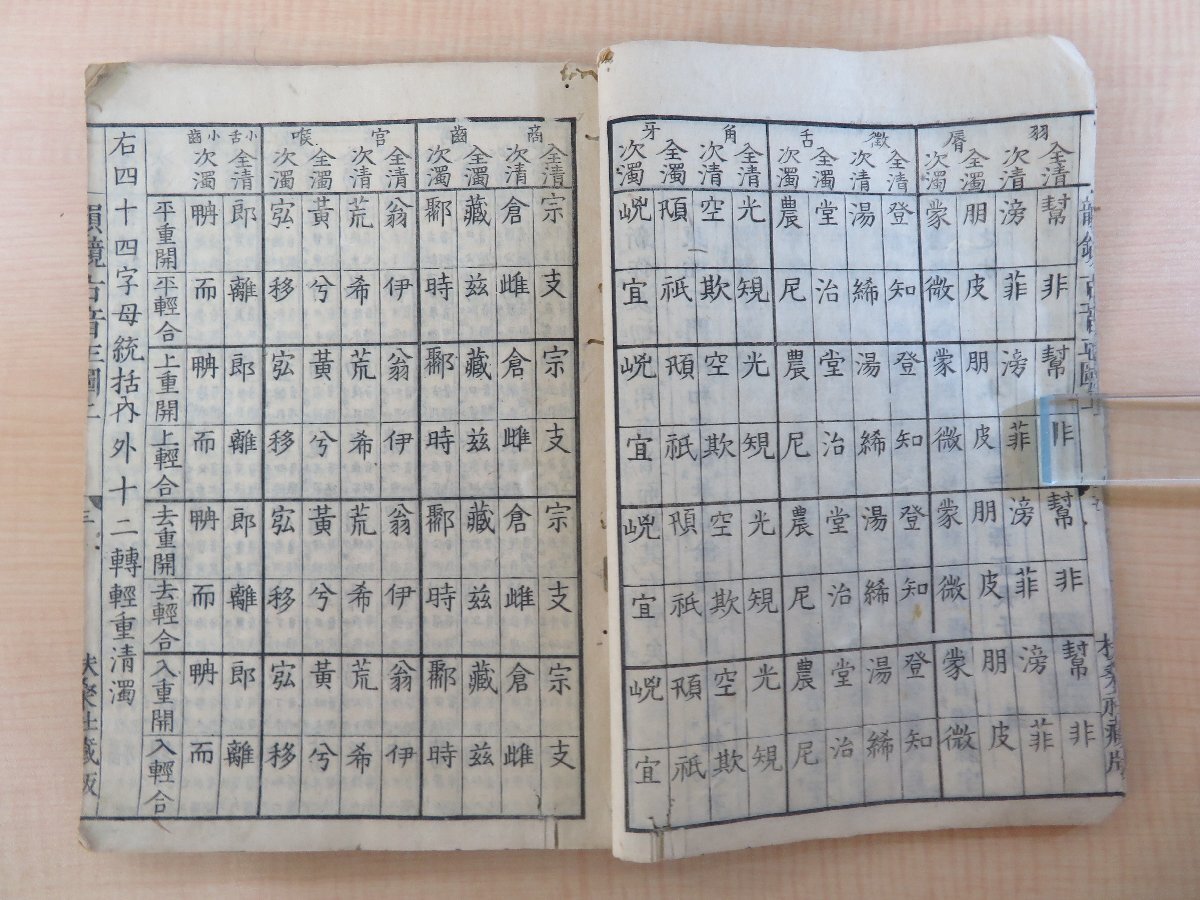 羽 唇 徵 舌 角 牙
全清 幫 非 幫 非 幫 非 幫 非
次清 滂 菲 滂 菲 滂 菲 滂 菲
全濁 朋 皮 朋 皮 朋 皮 朋 皮
次濁 蒙 微 蒙 微 蒙 微 蒙 微
全清 登 知 登 知 登 知 登 知
次清 湯 絺 湯 絺 湯 絺 湯 絺
全濁 堂 治 堂 治 堂 治 堂 治
次濁 農 尼 農 尼 農 尼 農 尼
全清 光 規 光 規 光 規 光 規
次清 空 欺 空 欺 空 欺 空 欺
全濁 祇 祇 祇 祇
次濁 宜 宜 宜 宜
商 齒 宮 喉 小舌 小齒
全清 宗 支 宗 支 宗 支 宗 支
次清 倉 雌 倉 雌 倉 雌 倉 雌
全濁 藏 茲 藏 茲 藏 茲 藏 茲
次濁 鄹 時 鄹 時 鄹 時 鄹 時
全清 翁 伊 翁 伊 翁 伊 翁 伊
次清 荒 希 荒 希 荒 希 荒 希
全濁 黃 兮 黃 兮 黃 兮 黃 兮
次濁 宖 移 宖 移 宖 移 宖 移
全清 郎 離 郎 離 郎 離 郎 離
次濁 而 而 而 而
平重開 平輕合 上重開 上輕合 去重開 去輕合 入重開 入輕合
右四十四字母統括内外十二轉輕重清濁
韻鏡古音正圖